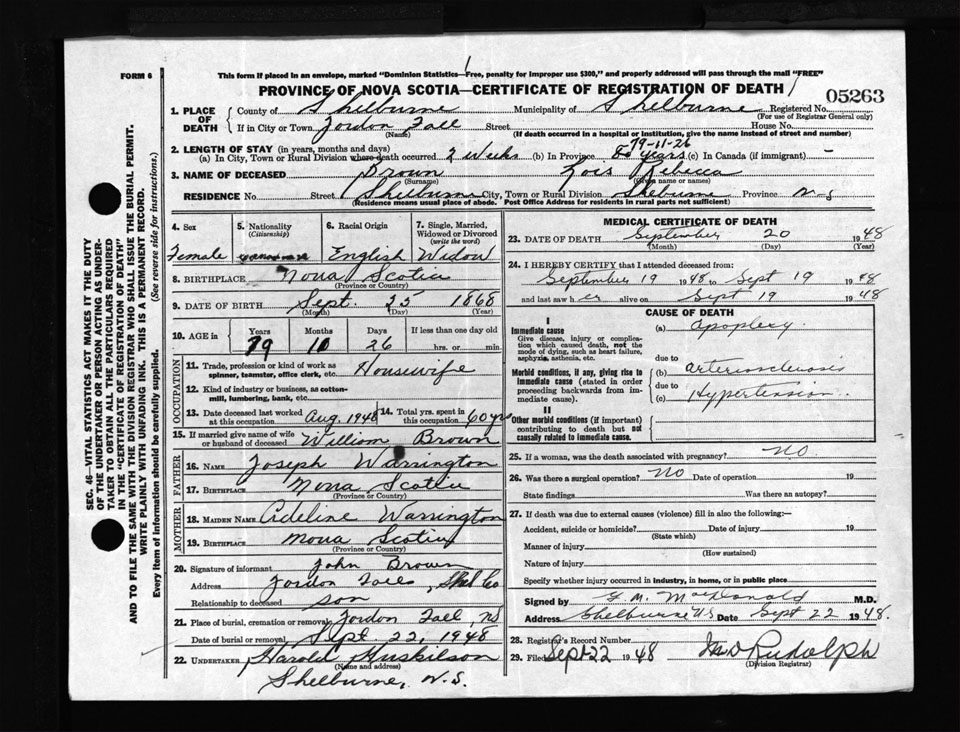 FORM 6
This form if placed in an envelope, marked "Dominion Statistics—Free, penalty for improper use $300," and properly addressed will pass through the mail "FREE"
PROVINCE OF NOVA SCOTIA—CERTIFICATE OF REGISTRATION OF DEATH
05263
1. PLACE OF DEATH County of Shelburne Municipality of Shelburne Registered No.
(For use of Registrar General only)
If in City or Town Jordan Fall Street House No.
(Name) (If death occurred in a hospital or institution, give the name instead of street and number)
2. LENGTH OF STAY (in years, months and days) 79-11-26
(a) In City, Town or Rural Division where death occurred 2 weeks (b) In Province 80 years (c) In Canada (if immigrant) —
3. NAME OF DECEASED Brown Lois Rebecca
(Surname) (Given name or names)
RESIDENCE No. Street Shelburne City, Town or Rural Division Shelburne Province N-S
(Residence means usual place of abode. Post Office Address for residents in rural parts not sufficient)
4. Sex 5. Nationality (Citizenship) 6. Racial Origin 7. Single, Married, Widowed or Divorced (write the word)
Female English Widow
8. BIRTHPLACE Nova Scotia
(Province or Country)
9. DATE OF BIRTH Sept. 25 1868
(Month) (Day) (Year)
10. AGE in Years Months Days If less than one day old
79 10 26 hrs. or min.
OCCUPATION
11. Trade, profession or kind of work as spinner, teamster, office clerk, etc. Housewife
12. Kind of industry or business, as cotton-mill, lumbering, bank, etc.
13. Date deceased last worked at this occupation Aug, 1948 14. Total yrs. spent in this occupation 60 yrs
15. If married give name of wife or husband of deceased William Brown
FATHER
16. NAME Joseph Warrington
17. BIRTHPLACE Nova Scotia
(Province or Country)
MOTHER
18. MAIDEN NAME Adeline Warrington
19. BIRTHPLACE Nova Scotia
(Province or Country)
20. Signature of informant John Brown
Address Jordon Falls, Shel Co
Relationship to deceased son
21. Place of burial, cremation or removal Jordon Fall, NS
Date of burial or removal Sept. 22, 1948
22. UNDERTAKER Harold Huskilson
(Name and address)
Shelburne, N.S.
MEDICAL CERTIFICATE OF DEATH
23. DATE OF DEATH September 20 1948
(Month) (Day) (Year)
24. I HEREBY CERTIFY that I attended deceased from:
September 19 1948 to Sept 19 1948
and last saw her alive on Sept 19 1948
CAUSE OF DEATH
I
Immediate cause (a) apoplexy.
Give disease, injury or complication which caused death, not the mode of dying, such as heart failure, asphyxia, asthenia, etc.
due to
Morbid conditions, if any, giving rise to immediate cause (stated in order proceeding backwards from immediate cause). (b) arteriosclerosis
due to
(c) Hypertension.
II
Other morbid conditions (if important) contributing to death but not causally related to immediate cause.
25. If a woman, was the death associated with pregnancy? NO
26. Was there a surgical operation? NO Date of operation 19
State findings Was there an autopsy?
27. If death was due to external causes (violence) fill in also the following:—
Accident, suicide or homicide? Date of injury 19
(State which)
Manner of injury
(How sustained)
Nature of injury
Specify whether injury occurred in industry, in home, or in public place
Signed by MacDonald M.D.
Address Shelburne N.S Date Sept 22 1948.
28. Registrar's Record Number
29. Filed Sept 22 1948 Rudolph
(Division Registrar)
SEC. 46—VITAL STATISTICS ACT MAKES IT THE DUTY
OF THE UNDERTAKER OR PERSON ACTING AS UNDER-
TAKER TO OBTAIN ALL THE PARTICULARS REQUIRED
IN THE "CERTIFICATE OF REGISTRATION OF DEATH"
AND TO FILE THE SAME WITH THE DIVISION REGISTRAR WHO SHALL ISSUE THE BURIAL PERMIT.
WRITE PLAINLY WITH UNFADING INK. THIS IS A PERMANENT RECORD.
Every item of information should be carefully supplied. (See reverse side for instructions.)